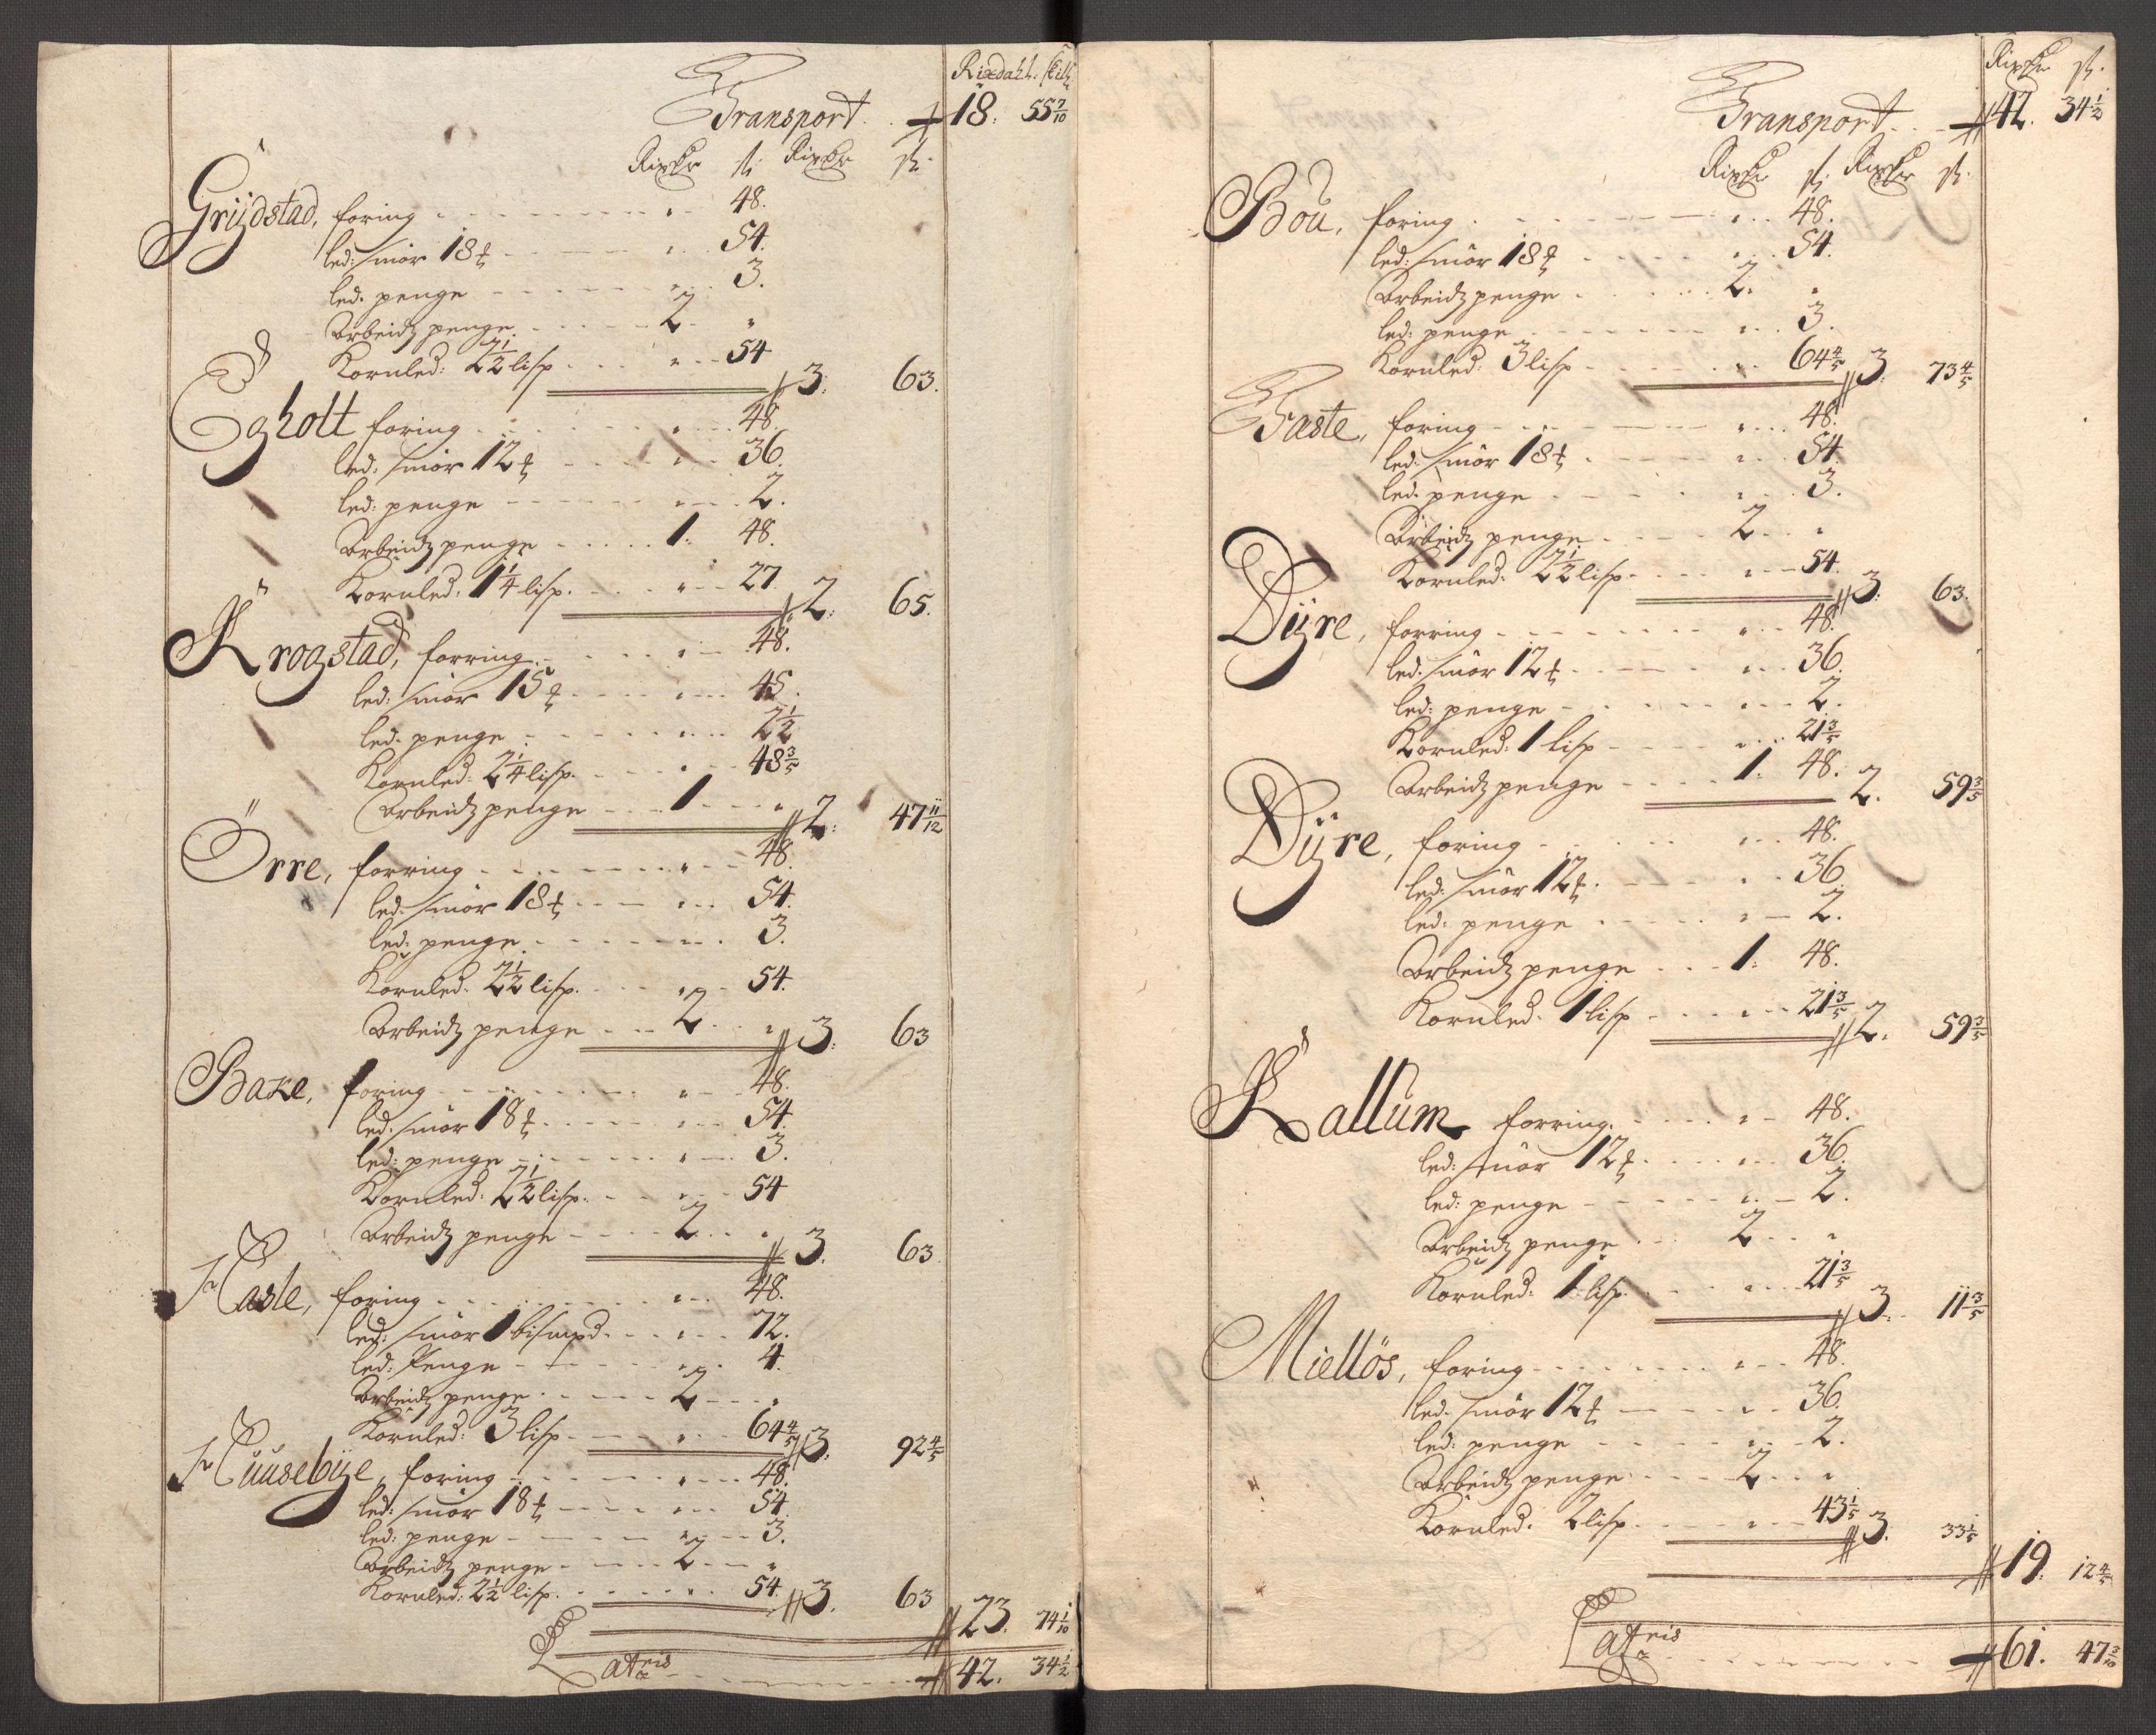 Rixdahl: skilˢ
Transport . . 18. 55 7/10
Rixdr ß: Rixdr ß.
Grÿdstad, foring . . . . 48.
led: smör 18 ℔ . . . . 54.
led: penge . . . . 3.
Arbeidz penge . . . . 2 . "
Kornled: 2 1/2 lisp . . . . 54 3. 63.
Egholt foring . . . . 48.
led: smör 12 ℔ . . . . 36.
led: penge . . . . 2.
Arbeidz penge . . . . 1. 48.
Kornled: 1 1/4 lisp. . . . . 27 2. 65.
Krogstad, forring . . . . 48.
led: smör 15 ℔ . . . . 45.
led: penge . . . . 2 1/2
Kornled: 2 1/4 lisp. . . . . 48 3/5
Arbeidz penge . . . . 1 . . " 2. 47 11/12
Örre, forring . . . . 48.
led: smör 18 ℔ . . . . 54.
led: penge . . . . 3.
Kornled: 2 1/2 lisp. . . . . 54.
Arbeidz penge . . . . 2 . . " 3. 63
Baxe, foring . . . . 48.
led: smör 18 ℔ . . . . 54.
led: penge . . . . 3.
Kornled: 2 1/2 lisp. . . . . 54
Arbeidz penge . . . . 2 . . " 3. 63
Hasle, foring . . . . 48.
led: smör 1 bismpd. . . . . 72.
led: Penge . . . . 4.
Arbeidz penge . . . . 2 . . "
Kornled: 3 lisp. . . . . 64 4/5 3. 92 4/5
Huusebÿe, foring . . . . 48.
led: smör 18 ℔ . . . . 54.
led: penge . . . . 3.
Arbeidz penge . . . . 2 . . "
Kornled: 2 1/2 lisp. . . . . 54. 3. 63
23. 74 1/10
Lateris . . . . 42. 34 1/2
Rixdr ß.
Transport . . 42. 34 1/2
Rixdr ß. Rixdr ß.
Böu, foring . . . . 48.
led: smör 18 ℔ . . . . 54.
Arbeidz penge . . . . 2. "
led: penge . . . . 3.
Kornled: 3 lisp . . . . 64 4/5 3. 73 4/5
Faste, foring . . . . 48.
led: smör 18 ℔ . . . . 54.
led: penge . . . . 3.
Arbeidz penge . . . . 2 . . "
Kornled: 2 1/2 lisp. . . . . 54. 3. 63.
Dÿre, forring . . . . 48.
led: smör 12 ℔ . . . . 36.
led: penge . . . . 2.
Kornled: 1 lisp . . . . 21 3/5
Arbeidz penge . . . . 1. 48. 2. 59 3/5
Dÿre, foring . . . . 48.
led: smör 12 ℔ . . . . 36
led: penge . . . . 2.
Arbeidz penge . . . . 1. 48.
Kornled: 1 lisp . . . . 21 3/5 2. 59 3/5
Kallum forring . . . . 48.
led: smör 12 ℔ . . . . 36.
led: penge . . . . 2.
Arbeidz penge . . . . 2 . . "
Kornled: 1 lisp. . . . . 21 3/5 3. 11 3/5
Miellös, foring . . . . 48.
led: smör 12 ℔ . . . . 36.
led: penge . . . . 2.
Arbeidz penge . . . . 2 . . "
Kornled: 2 lisp . . . . 43 1/5 3. 33 1/5
19. 12 4/5
Lateris . . . . 61. 47 3/10